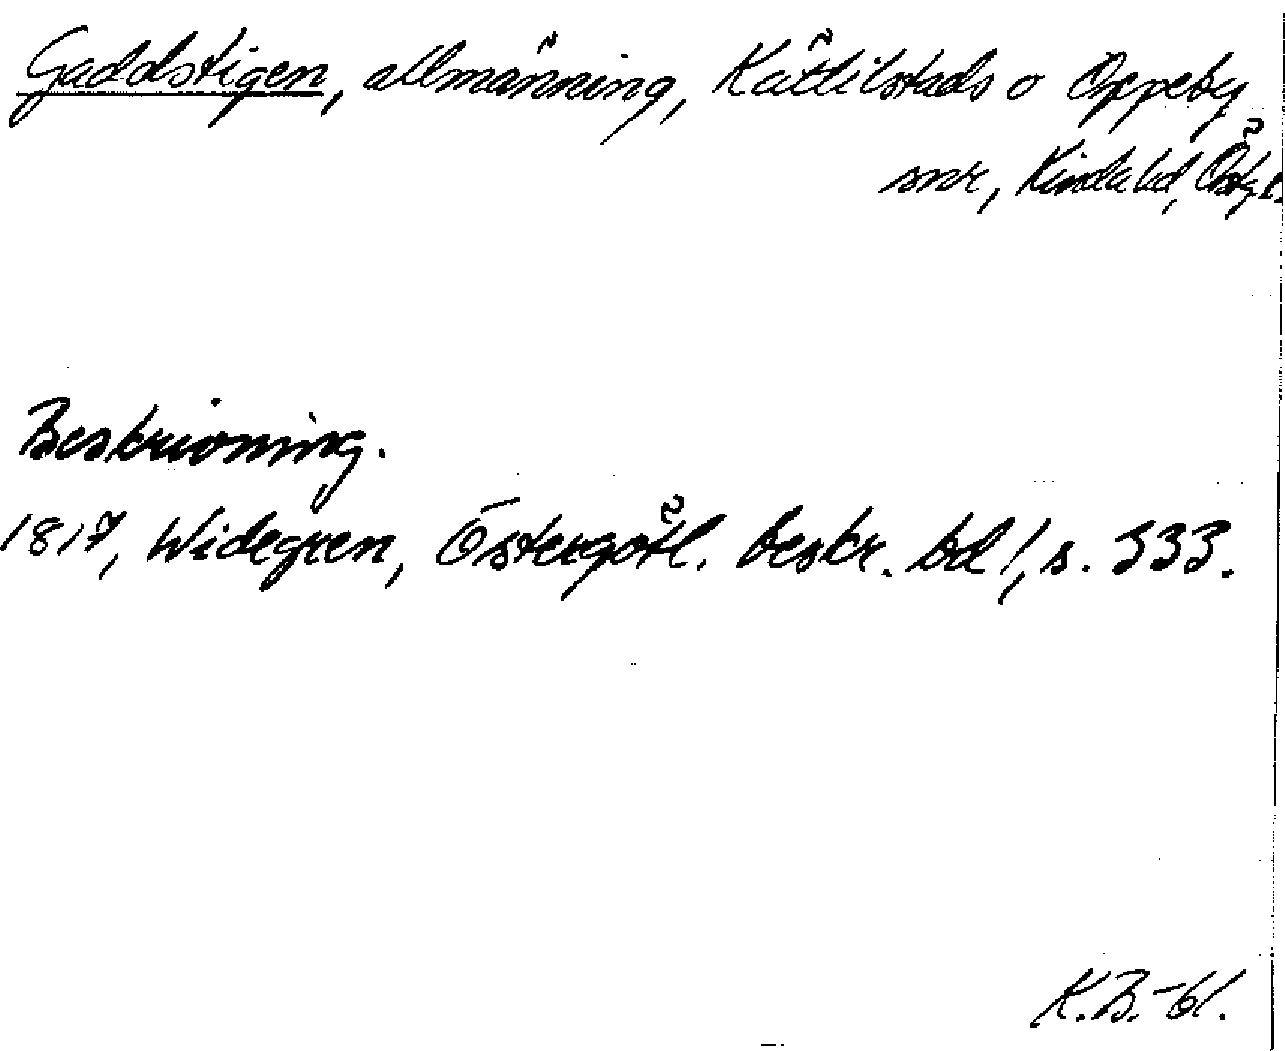 Gaddstigen, allmänning, Kättilstads o Oppeby
snr, Kinda hd, Östg. l.
Beskrivning.
1817, Widegren, Östergötl. beskr. bd 1, s. 333.
K.B.-61.